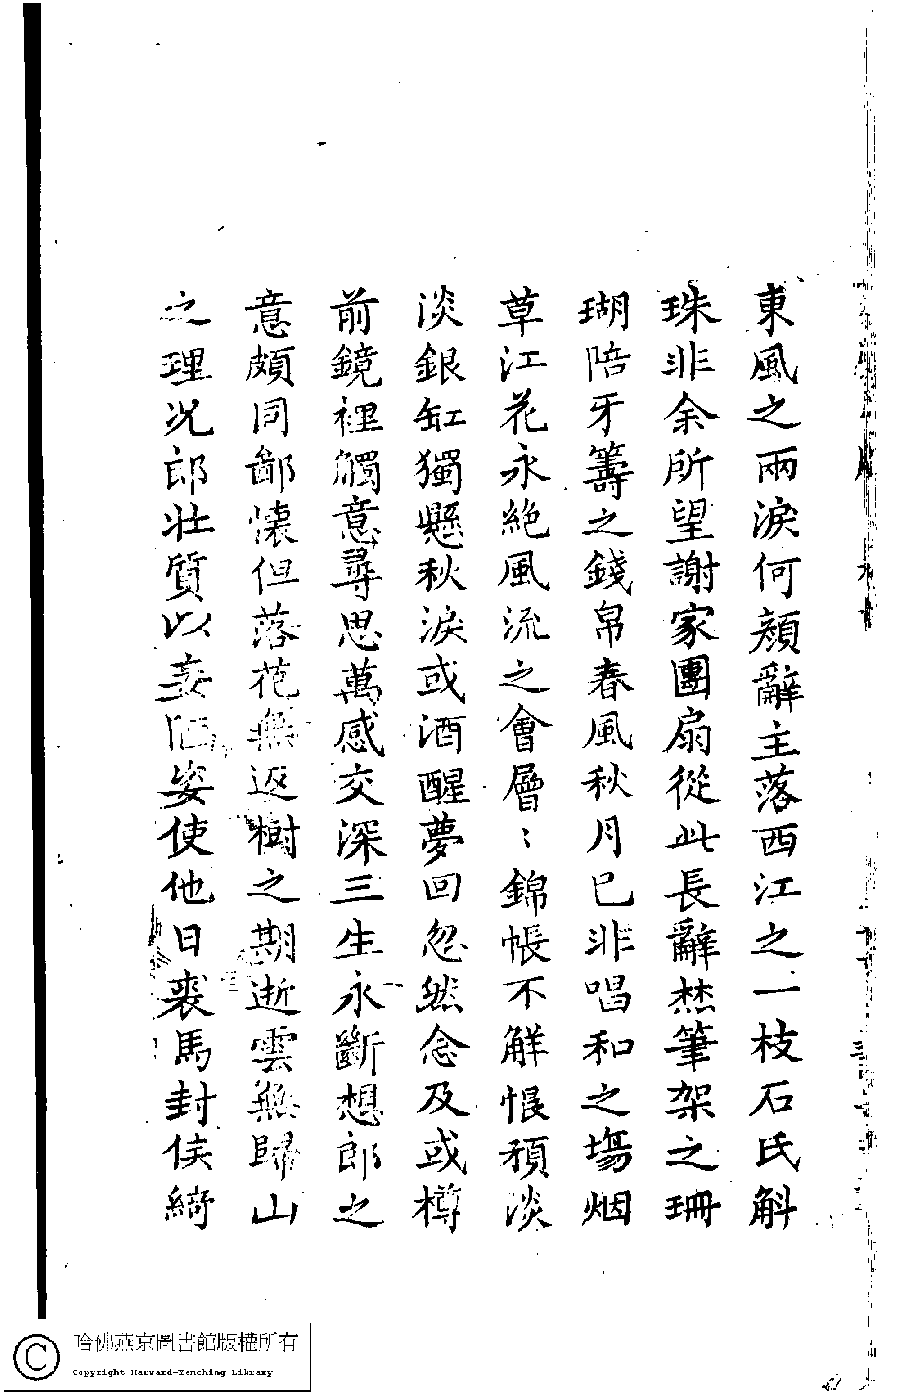 東風之兩淚何顔辭主落西江之一枝石氏斛
珠非余所望謝家團扇從此長辭㷊筆架之珊
瑚陪牙籌之錢帛春風秋月已非唱和之塲烟
草江花永絶風流之會層〻錦帳不觧恨積淡
淡銀缸獨懸秋淚或酒醒夢回忽然念及或樽
前鏡裡觸意尋思萬感交深三生永斷想郎之
意頗同鄙懷但落花無返樹之期逝雲無歸山
之理况郎壯質以妾陋姿使他日裘馬封侯綺
哈佛燕京圖書館版權所有
Copyright Harvard-Yenching Library